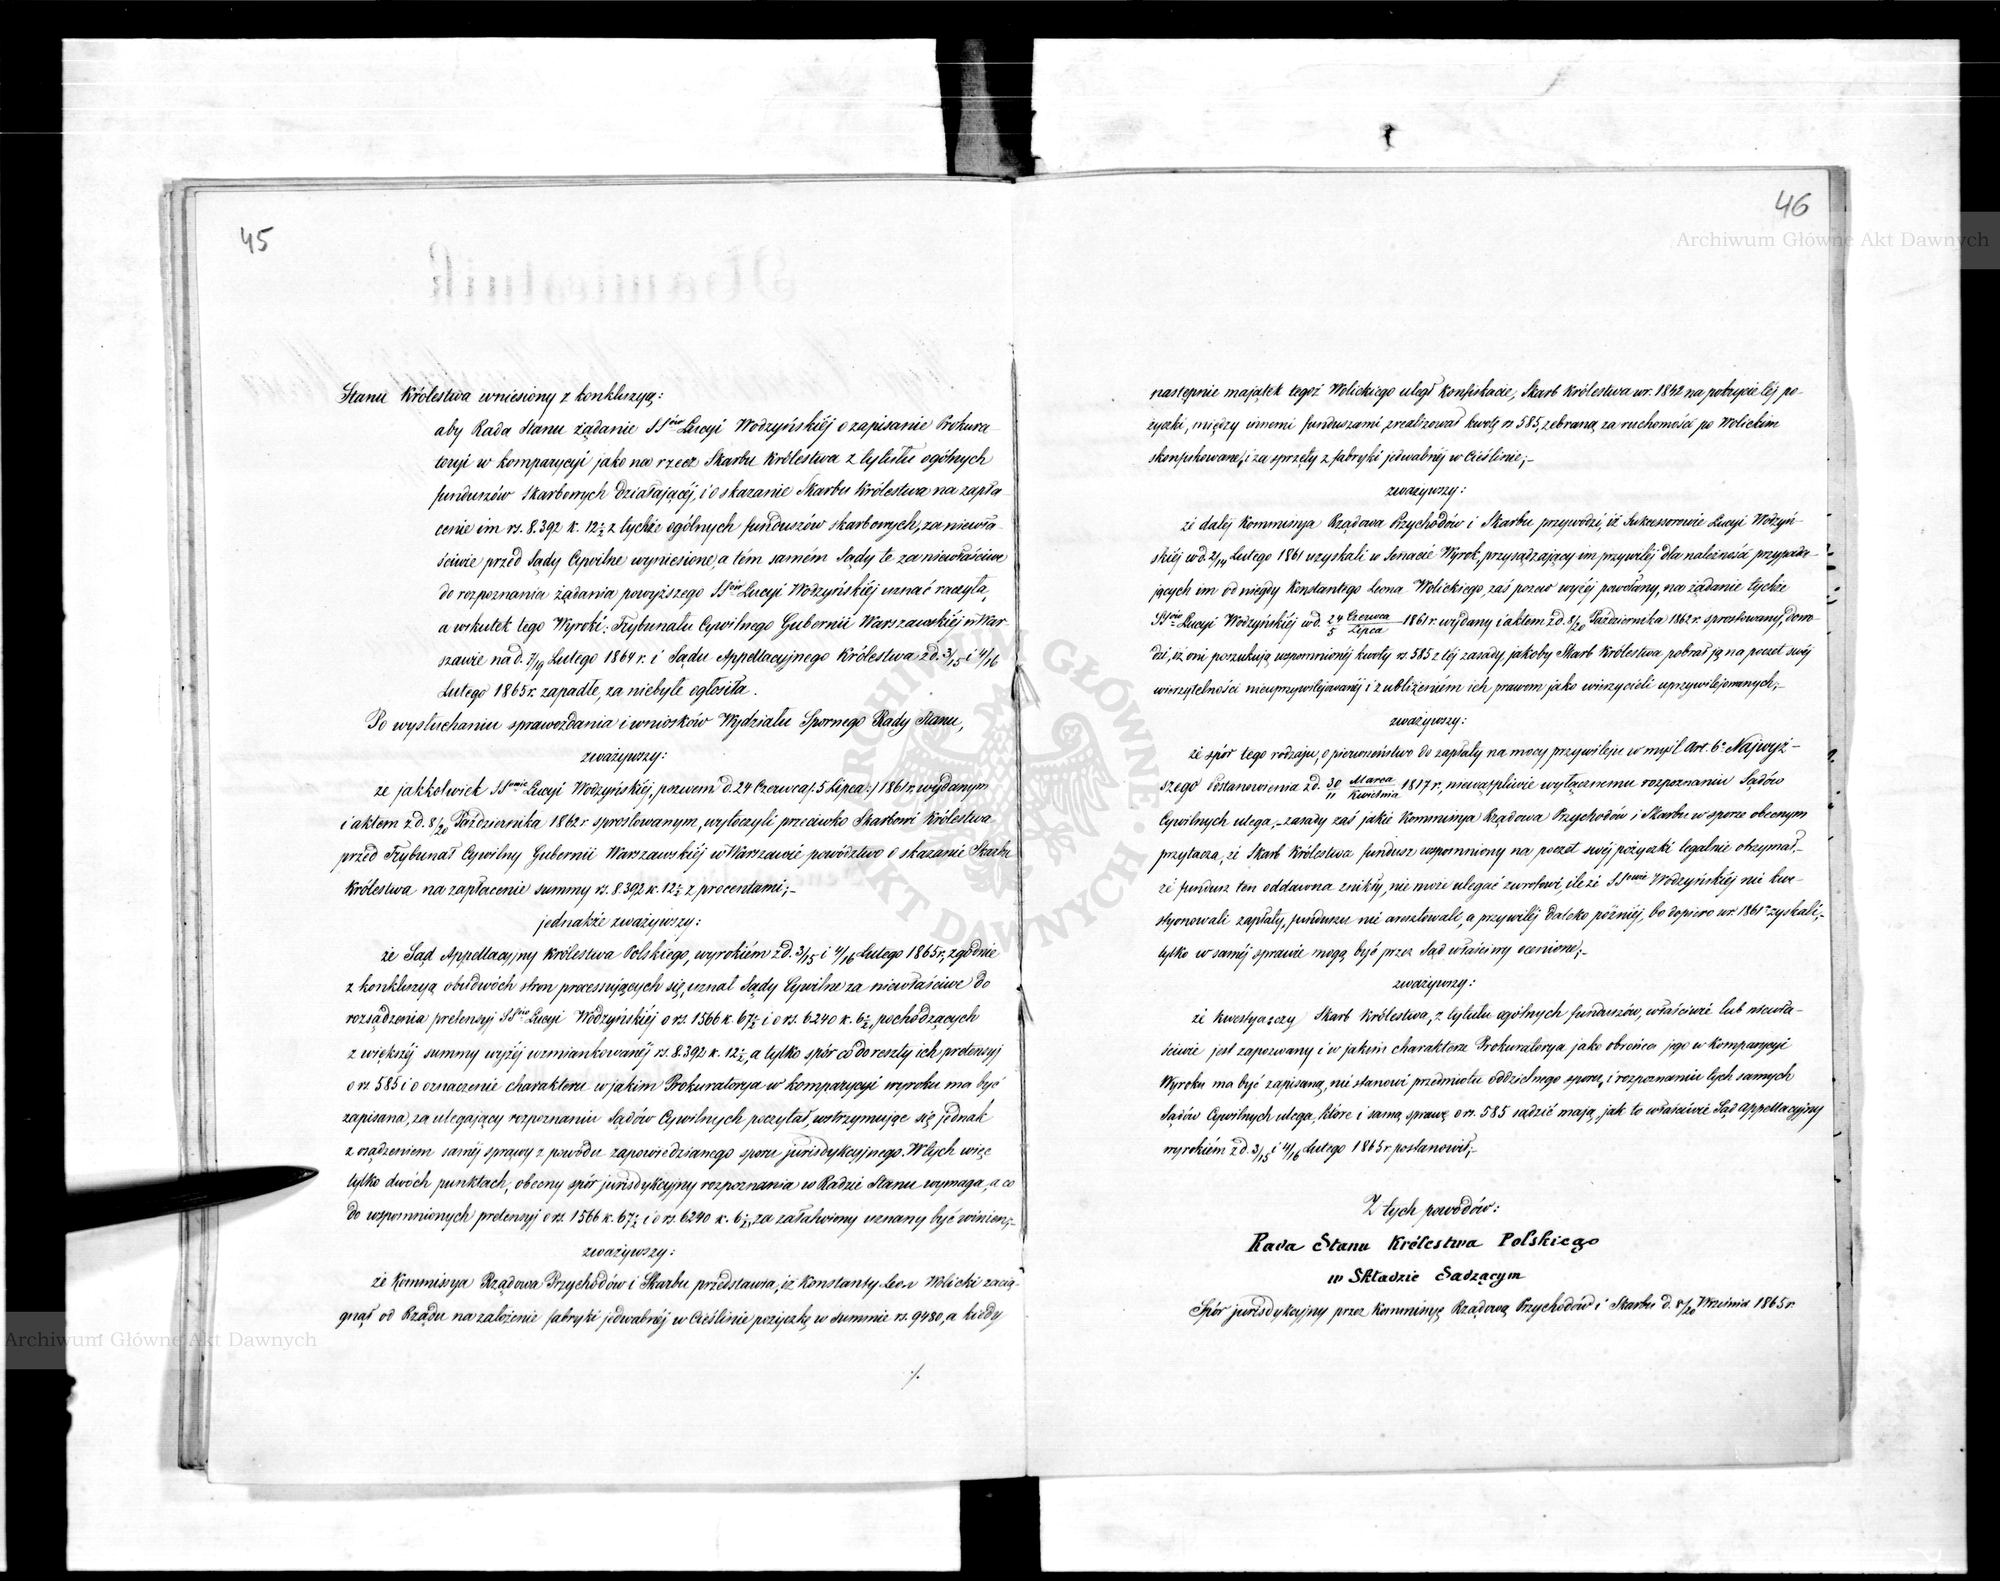 45
Stanu Królestwa wniesiony z konkluzyą:
aby Rada Stanu żądanie SSów Lucyi Wodzyńskiéj o zapisanie Prokura-
toryi w komparycyi jako na rzecz Skarbu Królestwa z tytułu ogólnych
funduszów skarbowych działającéj, i o skazanie Skarbu Królestwa na zapła-
cenie im rs. 8.392 k. 12½ z tychże ogólnych funduszów skarbowych, za niewła-
ściwie przed Sądy Cywilne wyniesione, a tém samém Sądy te za niewłaściwe
do rozpoznania żądania powyższego SSów Lucyi Wodzyńskiéj uznać raczyła,
a wskutek tego Wyroki: Trybunału Cywilnego Gubernii Warszawskiéj w War-
szawie na d. 7/19 Lutego 1864 r. i Sądu Appellacyjnego Królestwa z d. 3/15 i 4/16
Lutego 1865 r. zapadłe, za niebyłe ogłosiła.
Po wysłuchaniu sprawozdania i wniosków Wydziału Spornego Rady Stanu,
zważywszy:
że jakkolwiek SSowie Lucyi Wodzyńskiéj, pozwem d. 24 Czerwca /: 5 Lipca :/ 1861 r. wydanym
i aktem z d. 8/20 Października 1862 r. sprostowanym, wytoczyli przeciwko Skarbowi Królestwa
przed Trybunał Cywilny Gubernii Warszawskiéj w Warszawie powództwo o skazanie Skarbu
Królestwa na zapłacenie summy rs. 8392 k. 12½ z procentami;–
jednakże zważywszy:
że Sąd Appellacyjny Królestwa Polskiego, wyrokiém z d. 3/15 i 4/16 Lutego 1865 r., zgodnie
z konkluzyą obudwóch stron processujących się, uznał Sądy Cywilne za niewłaściwe do
rozsądzenia pretensyj SSów Lucyi Wodzyńskiéj o rs. 1566 k. 67½ i o rs. 6240 k. 6½, pochodzących
z większéj summy wyżéj wzmiankowanéj rs. 8.392 k. 12½, a tylko spór co do reszty ich pretensyj
o rs. 585 i o oznaczenie charakteru w jakim Prokuratorya w komparycyi wyroku ma być
zapisana, za ulegający rozpoznaniu Sądów Cywilnych poczytał, wstrzymując się jednak
z osądzeniem saméj sprawy z powodu zapowiedzianego sporu jurisdykcyjnego. W tych więc
tylko dwóch punktach, obecny spór jurisdykcyjny rozpoznania w Radzie Stanu wymaga, a co
do wspomnionych pretensyj o rs. 1566 k. 67½ i o rs. 6240 k. 6½, za załatwiony uznany być winien;–
zważywszy:
że Kommissya Rządowa Przychodów i Skarbu przedstawia, iż Konstanty Leon Wolicki zacią-
gnął od Rządu na założenie fabryki jedwabnéj w Cieślinie pożyczkę w summie rs. 9480, a kiedy
./.
46
następnie majątek tegoż Wolickiego uległ konfiskacie, Skarb Królestwa w r. 1842 na pokrycie téj po-
życzki, między innemi funduszami, zrealizował kwotę rs 585, zebraną za ruchomości po Wolickim
skonfiskowane, i za sprzęty z fabryki jedwabnéj w Cieślinie;–
zważywszy:
że daléj Kommissya Rządowa Przychodów i Skarbu przywodzi, iż Sukcessorowie Lucyi Wodzyń-
skiéj w d. 2/14 Lutego 1861 uzyskali w Senacie Wyrok, przysądzający im przywiléj dla należności przypada-
jących im od niegdy Konstantego Leona Wolickiego, zaś pozew wyżéj powołany, na żądanie tychże
SSów Lucyi Wodzyńskiéj w d. 24 Czerwca/5 Lipca 1861 r. wydany i aktem z d. 8/20 Października 1862 r. sprostowany, dowo-
dzi, iż oni poszukują wspomnionéj kwoty rs. 585 z téj zasady, jakoby Skarb Królestwa pobrał ją na poczet swéj
wierzytelności nieuprzywilejowanéj i z ubliżeniem ich prawom jako wierzycieli uprzywilejowanych;–
zważywszy:
że spór tego rodzaju, o pierwszeństwo do zapłaty na mocy przywileju w myśl Art. 6o Najwyż-
szego Postanowienia z d. 30 Marca/11 Kwietnia 1817 r., niewątpliwie wyłącznemu rozpoznaniu Sądów
Cywilnych ulega,– zasady zaś jakie Kommissya Rządowa Przychodów i Skarbu w sporze obecnym
przytacza, że Skarb Królestwa fundusz wspomniony na poczet swéj pożyczki legalnie otrzymał,–
że fundusz ten oddawna znikły, nie może ulegać zwrotowi, ile że SSowie Wodzyńskiéj nie kwe-
styonowali zapłaty, funduszu nie aresztowali, a przywiléj daleko późniéj, bo dopiero w r. 1861 zyskali,–
tylko w saméj sprawie mogą być przez Sąd właściwy ocenione;–
zważywszy:
że kwestya: czy Skarb Królestwa, z tytułu ogólnych funduszów, właściwie lub niewła-
ściwie jest zapozwany i w jakim charakterze Prokuratorya jako obrońca jego w komparycyi
Wyroku ma być zapisaną, nie stanowi przedmiotu oddzielnego sporu, i rozpoznaniu tych samych
Sądów Cywilnych ulega, które i samą sprawę o rs. 585 sądzić mają, jak to właściwie Sąd Appellacyjny
wyrokiém z d. 3/15 i 4/16 Lutego 1865 r. postanowił;–
Z tych powodów:
Rada Stanu Królestwa Polskiego
w Składzie Sądzącym
Spór jurisdykcyjny przez Kommissyę Rządową Przychodów i Skarbu d. 8/20 Września 1865 r.
Archiwum Główne Akt Dawnych
Archiwum Główne Akt Dawnych
ARCHIWUM GŁÓWNE AKT DAWNYCH